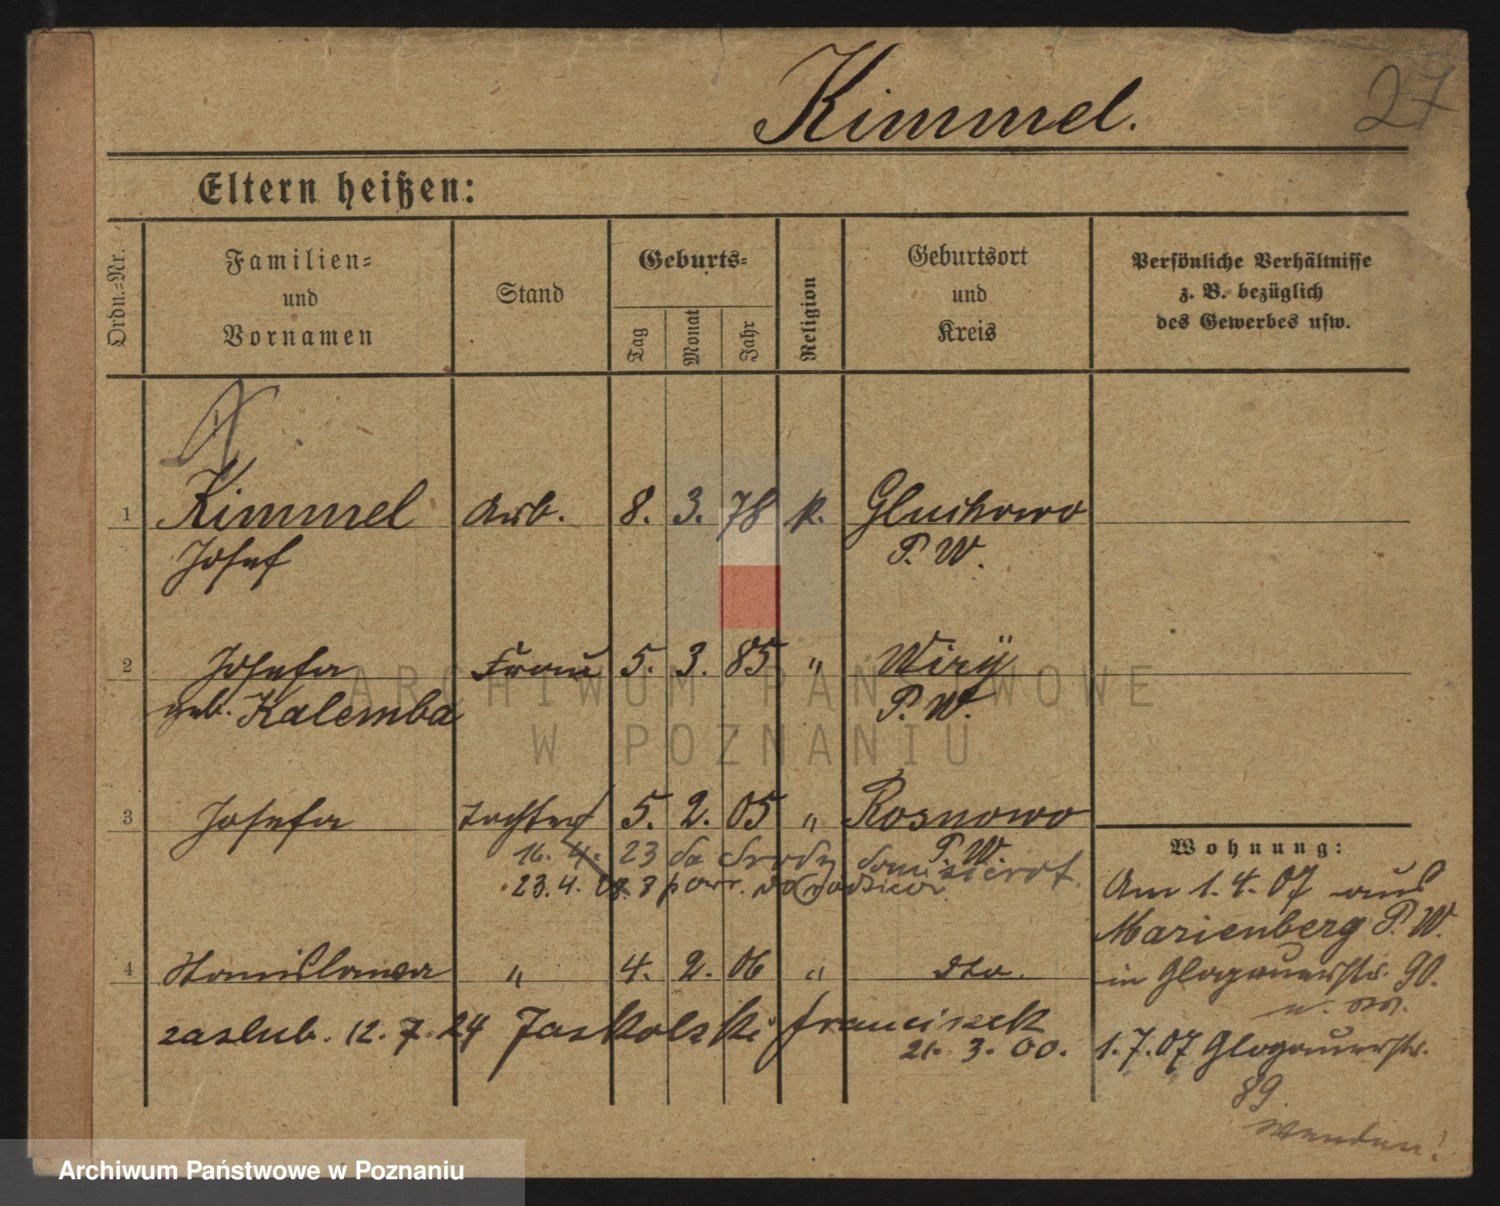 27
Kimmel.
Eltern heißen:
Ordn.=Nr.
Familien=
und
Vornamen
Stand
Geburts=
Tag
Monat
Jahr
Religion
Geburtsort
und
Kreis
Persönliche Verhältnisse
z. B. bezüglich
des Gewerbes usw.
1 Kimmel Arb. 8. 3. 78 k. Gluchowo
Josef P. W.
2 Josefa Frau 5. 3. 85 " Wiry
geb. Kalemba P. W.
3 Josefa Tochter 5. 2. 05 " Rosnowo
P. W.
16. 4. 23 do Środy
23. 4. 23 pow. do rodziców
4 Stanislawa " 4. 2. 06 " dto.
zaslub. 12. 7. 24 Jaskolski Franciszek
21. 3. 00.
Wohnung:
Am 1. 4. 07 aus
Marienberg P. W.
in Glogauerstr. 90.
1. 7. 07 Glogauerstr.
89
Wenden!
ARCHIWUM PAŃSTWOWE
W POZNANIU
Archiwum Państwowe w Poznaniu